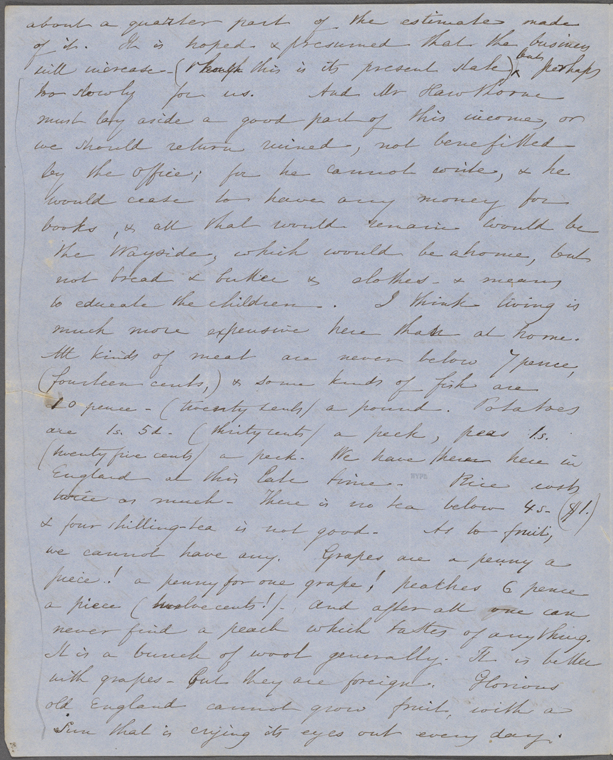 about a quarter part of the estimate made
of it. It is hoped & presumed that the business
will increase - (though this is its present state) but perhaps
too slowly for us. And Mr Hawthorne
must lay aside a good part of this income, or
we should return ruined, not benefitted
by the office; for he cannot write, & he
would cease to have any money for
books, & all that would remain would be
the Wayside, which would be a home, but
not bread & butter & clothes - & means
to educate the children. I think living is
much more expensive here than at home.
All kinds of meat are never below 7 pence,
(fourteen cents,) & some kinds of fish are
10 pence - (twenty cents) a pound. Potatoes
are 1s. 5d. (thirty cents) a peck, peas 1s.
(twenty five cents) a peck. We have them here in
England at this late time. Rice costs
twice as much - There is no tea below 4s - ($1.)
& four shilling-tea is not good. As to fruit,
we cannot have any. Grapes are a penny a
piece! a penny for one grape! peaches 6 pence
a piece (twelve cents!) - And after all one can
never find a peach which tastes of anything.
It is a bunch of wool generally. It is better
with grapes - but they are foreign. Glorious
old England cannot grow fruit, with a
Sun that is crying its eyes out every day.